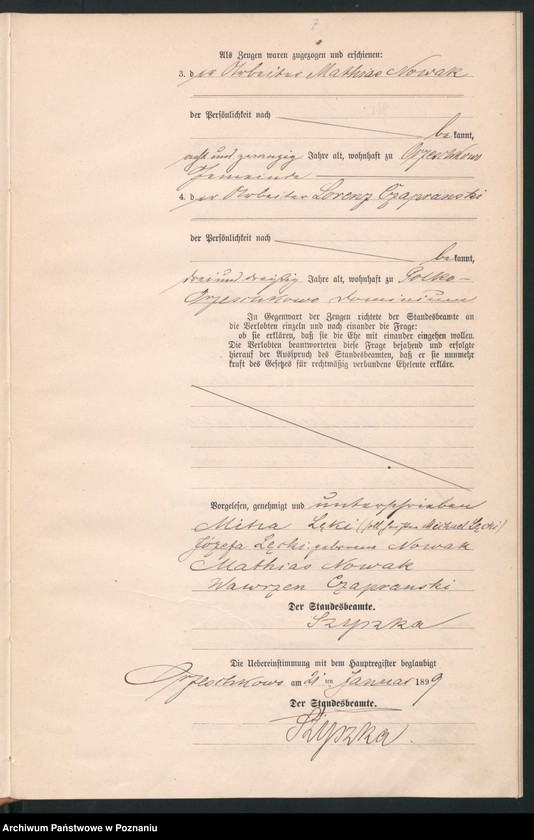 Als Zeugen waren zugezogen und erschienen:
3. der Arbeiter Mathias Nowak
der Persönlichkeit nach
bekannt,
acht und zwanzig Jahre alt, wohnhaft zu Orzeschkowo
Gemeinde
4. der Arbeiter Lorenz Czapranski
der Persönlichkeit nach
bekannt,
drei und dreißig Jahre alt, wohnhaft zu Polko-
Orzeschkowo Dominium
In Gegenwart der Zeugen richtete der Standesbeamte an
die Verlobten einzeln und nach einander die Frage:
ob sie erklären, daß sie die Ehe mit einander eingehen wollen.
Die Verlobten beantworteten diese Frage bejahend und erfolgte
hierauf der Ausspruch des Standesbeamten, daß er sie nunmehr
kraft des Gesetzes für rechtmäßig verbundene Eheleute erkläre.
Vorgelesen, genehmigt und unterschrieben
Lęki (soll heißen Michael Lęcki)
Józefa Lęcki geborene Nowak
Mathias Nowak
Wawrzen Czapranski
Der Standesbeamte.
Szyszka
Die Uebereinstimmung mit dem Hauptregister beglaubigt
Orzeschkowo am 21 ten Januar 1899
Der Standesbeamte.
Szyszka.
Archiwum Państwowe w Poznaniu